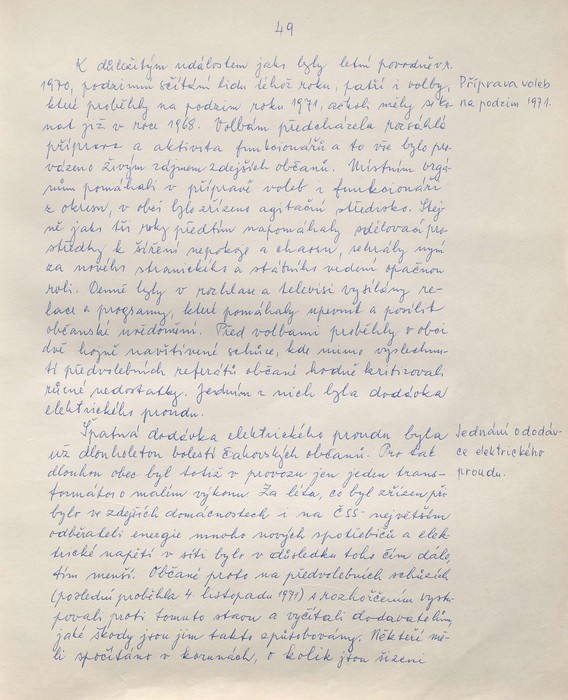 49
K důležitým událostem jako byly letní povodně v r.
1970, podzimní sčítání lidu téhož roku, patří i volby,
které proběhly na podzim roku 1971, ačkoli měly se ko-
nat již v roce 1968. Volbám předcházela rozsáhlá
příprava a aktivita funkcionářů a to vše bylo pro-
vázeno živým zájmem zdejších občanů. Místním orgá-
nům pomáhali v přípravě voleb i funkcionáři
z okresu, v obci bylo zřízeno agitační středisko. Stej-
ně jako tři roky předtím napomáhaly sdělovací pro-
středky k šíření nepokoje a chaosu, sehrály nyní
za nového stranického a státního vedení opačnou
roli. Denně byly v rozhlase a televisi vysílány re-
lace a programy, které pomáhaly upevnit a posílit
občanské uvědomění. Před volbami proběhly v obci
dvě hojně navštívené schůze, kde mimo vyslechnu-
tí předvolebních referátů občané hodně kritizovali
různé nedostatky. Jedním z nich byla dodávka
elektrického proudu.
Příprava voleb
na podzim 1971.
Špatná dodávka elektrického proudu byla
už dlouholetou bolestí čakovských občanů. Pro tak
dlouhou obec byl totiž v provozu jen jeden trans-
formátor o malém výkonu. Za léta, co byl zřízen při-
bylo ve zdejších domácnostech i na ČSS největším
odběrateli energie mnoho nových spotřebičů a elek-
trické napětí v síti bylo v důsledku toho čím dále,
tím menší. Občané proto na předvolebních schůzích
(poslední proběhla 4. listopadu 1971) s rozhořčením vystu-
povali proti tomuto stavu a vyčítali dodavatelům,
jaké škody jsou jim takto způsobovány. Někteří mě-
li spočítáno v korunách, o kolik jsou šizeni
Jednání o dodáv-
ce elektrického
proudu.